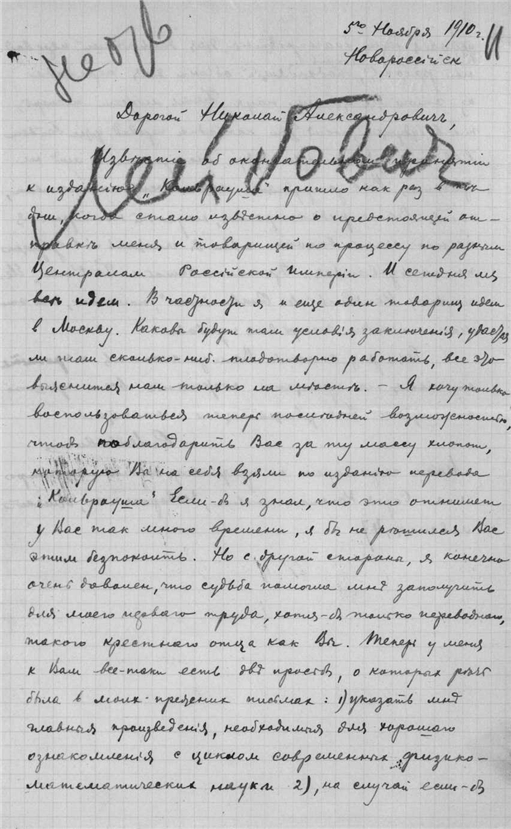 5го Ноября 1910 г.
Новороссійск
Дорогой Николай Александровичъ,
Извѣстіе об окончательном принятіи
к изданію „Кольрауша" пришло как раз в
дни, когда стало извѣстно о предстоящей от-
правкѣ меня и товарищей по процессу по разным
Централам Россійской имперіи. И сегодня мы
идем. В частности я и еще один товарищ идем
в Москву. Каковы будут там условія заключенія, удастся
ли там сколько-ниб. плодотворно работать, все это
выяснится нам только на мѣстѣ. – Я хочу только
воспользоваться теперь послѣдней возможностью,
чтоб поблагодарить Вас за ту массу хлопот,
которую Вы на себя взяли по изданію перевода
„Кольрауша" Если-б я знал, что это отнимет
у Вас так много времени, я бы не рѣшился Вас
этим безпокоить. Но с другой стороны, я конечно
очень доволен, что судьба помогла мнѣ заполучить
для моего перваго труда, хотя-б только переводнаго,
такого крестнаго отца как Вы. Теперь у меня
к Вам все-таки есть двѣ просьбы, о которых рѣчь
была в моих прежних письмах: 1) указать мнѣ
главныя произведенія, необходимыя для хорошаго
ознакомленія с циклом современных физико-
математических наук и 2), на случай если-б